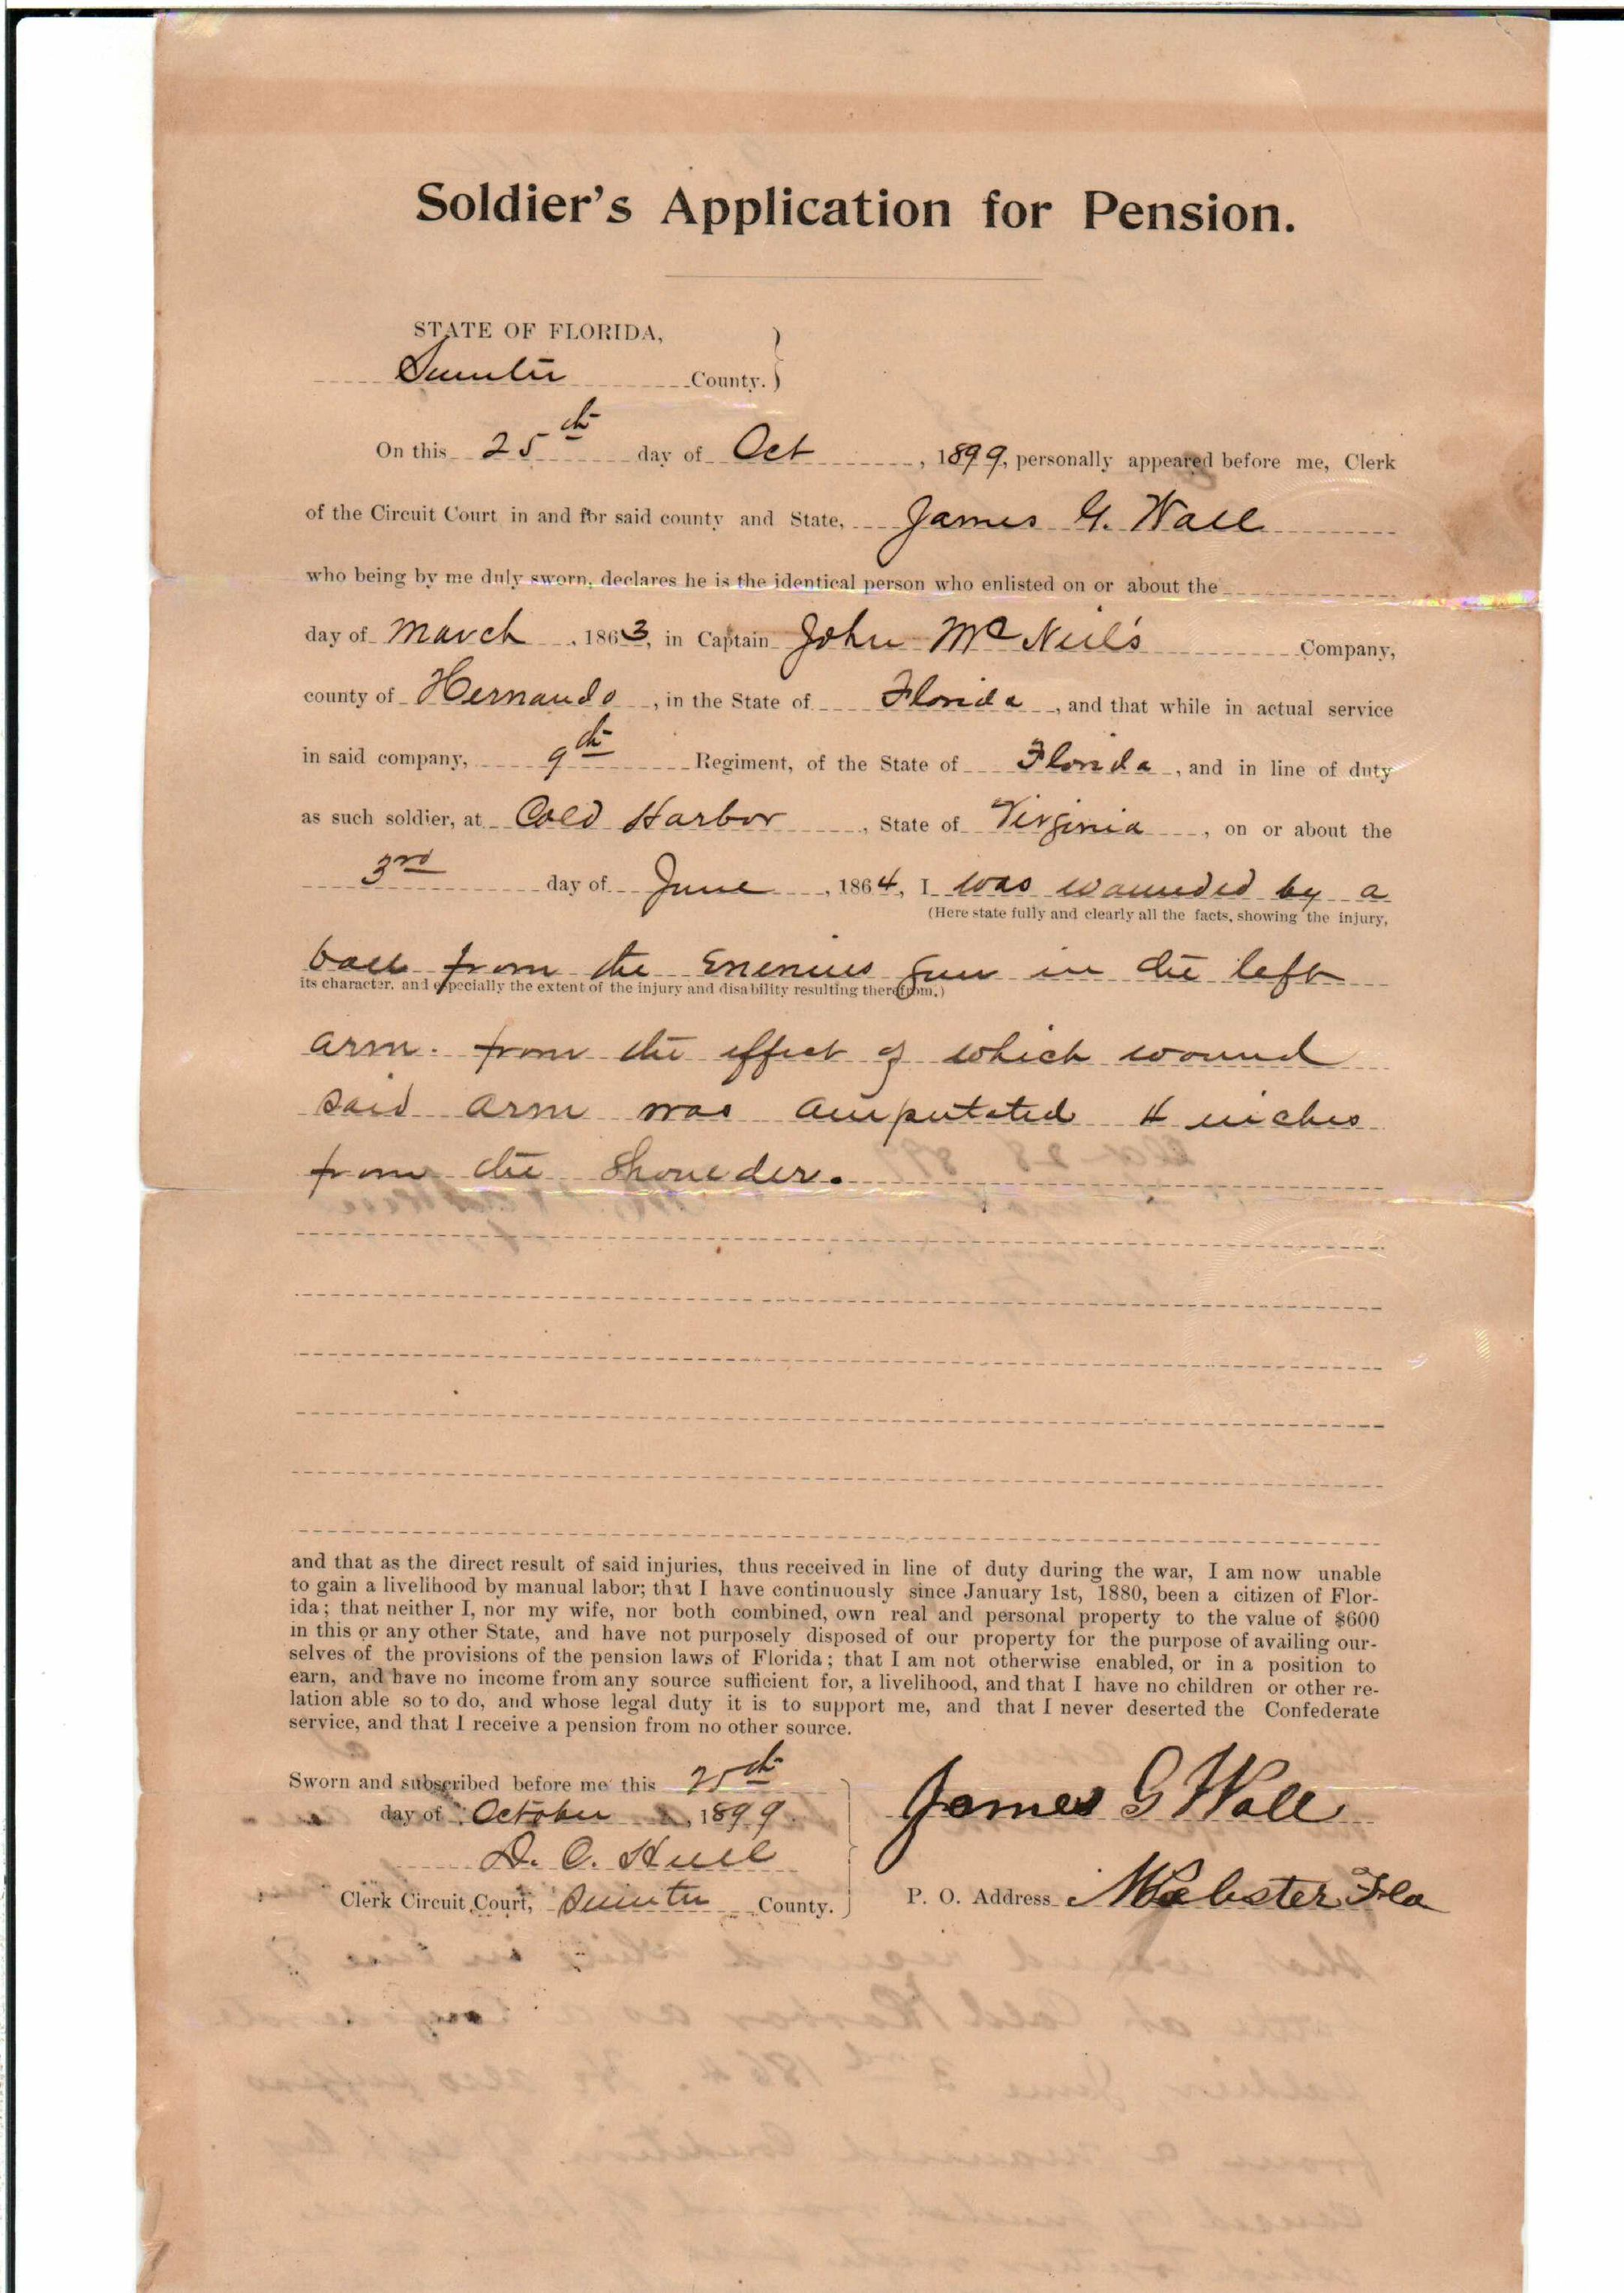 Soldier's Application for Pension.
STATE OF FLORIDA,
Sumter County.
On this 25th day of Oct, 1899, personally appeared before me, Clerk
of the Circuit Court in and for said county and State, James G. Wall
who being by me duly sworn, declares he is the identical person who enlisted on or about the
day of March, 1863, in Captain John McNeil's Company,
county of Hernando, in the State of Florida, and that while in actual service
in said company, 9th Regiment, of the State of Florida, and in line of duty
as such soldier, at Cold Harbor, State of Virginia, on or about the
3rd day of June, 1864, I was wounded by a
(Here state fully and clearly all the facts, showing the injury,
ball from the Enemies gun in the left
its character, and especially the extent of the injury and disability resulting therefrom.)
arm. from the effect of which wound
said arm was amputated 4 inches
from the Shoulder.
and that as the direct result of said injuries, thus received in line of duty during the war, I am now unable
to gain a livelihood by manual labor; that I have continuously since January 1st, 1880, been a citizen of Flor-
ida; that neither I, nor my wife, nor both combined, own real and personal property to the value of $600
in this or any other State, and have not purposely disposed of our property for the purpose of availing our-
selves of the provisions of the pension laws of Florida; that I am not otherwise enabled, or in a position to
earn, and have no income from any source sufficient for, a livelihood, and that I have no children or other re-
lation able so to do, and whose legal duty it is to support me, and that I never deserted the Confederate
service, and that I receive a pension from no other source.
Sworn and subscribed before me this 25th
day of October, 1899.
James G Wall
D. C. Hull
Clerk Circuit Court, Sumter County.
P. O. Address Webster Fla